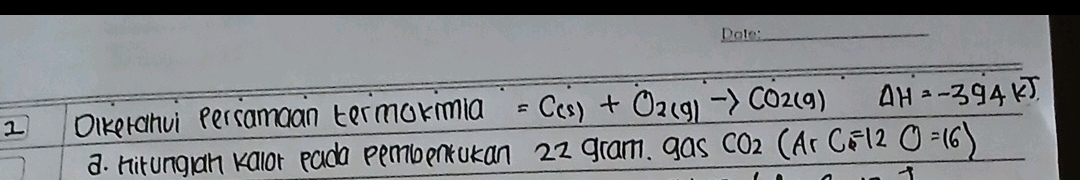 Date:
1 Diketahui Persamaan termokimia = C(s) + O2(g) -> CO2(g) ΔH = -394 kJ.
a. hitunglah kalor pada pembentukan 22 gram. gas CO2 (Ar C=12 O=16)